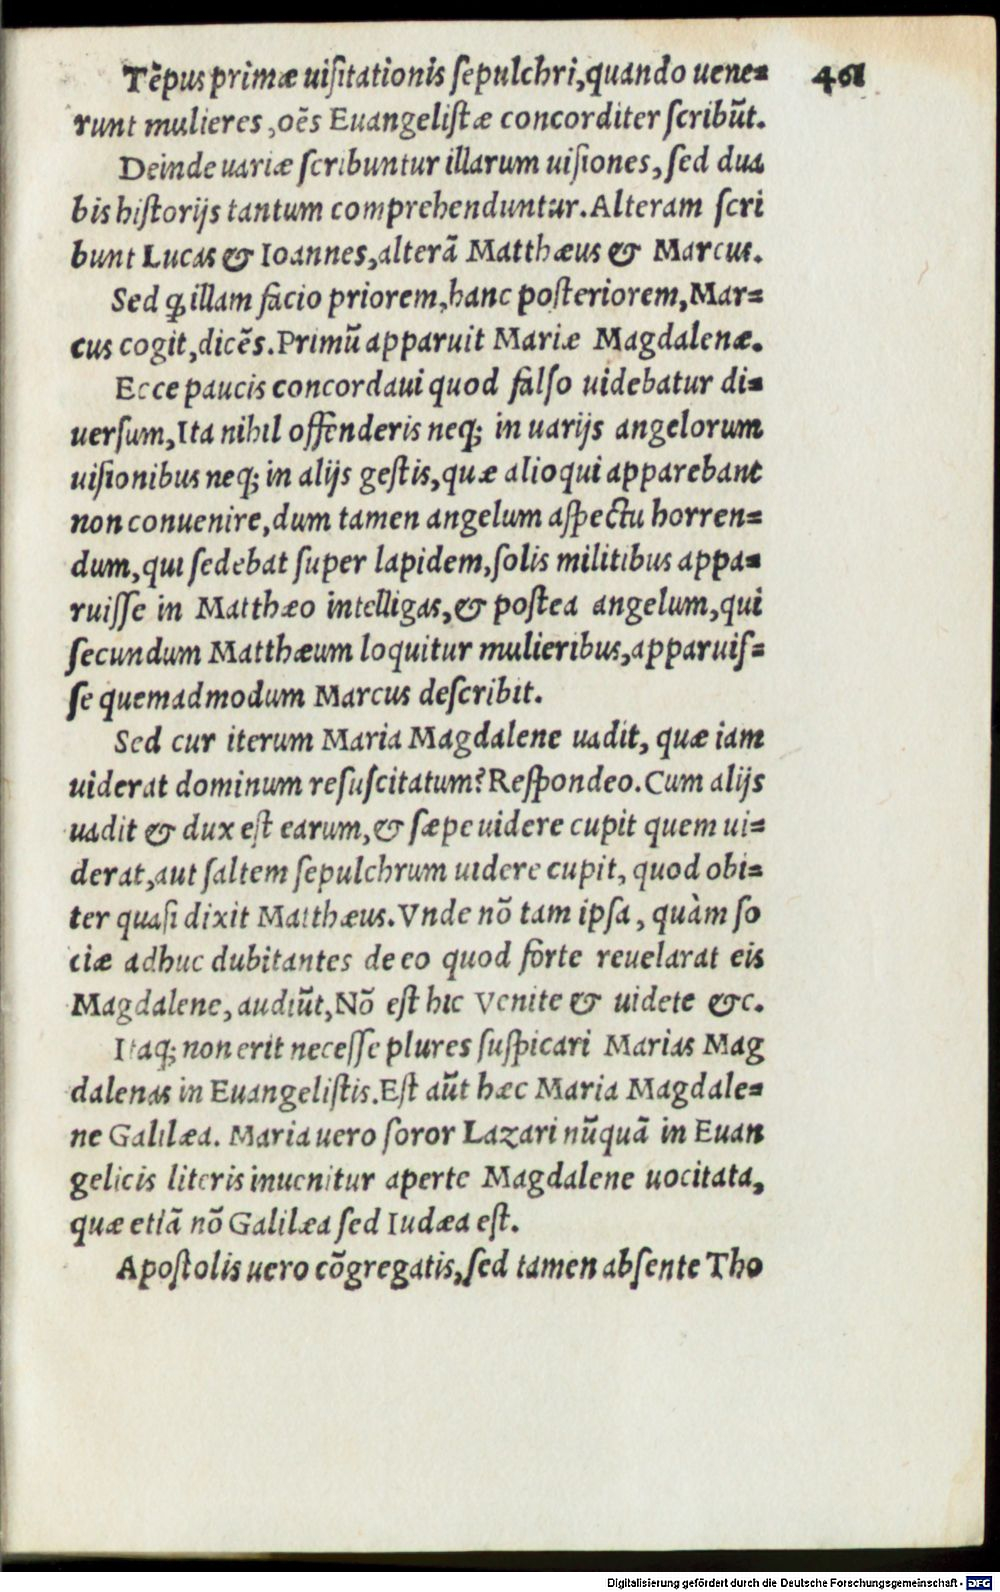 Tẽpus primæ uiſitationis ſepulchri, quando uene= 461
runt mulieres, oẽs Euangeliſtæ concorditer ſcribũt.
Deinde uariæ ſcribuntur illarum uiſiones, ſed dua
bis hiſtorijs tantum comprehenduntur. Alteram ſcri
bunt Lucas & Ioannes, alterã Matthæus & Marcus.
Sed ꝙ illam facio priorem, hanc poſteriorem, Mar=
cus cogit, dicẽs. Primũ apparuit Mariæ Magdalenæ.
Ecce paucis concordaui quod falſo uidebatur di=
uerſum, Ita nihil offenderis neqꝫ in uarijs angelorum
uiſionibus neqꝫ in alijs geſtis, quæ alioqui apparebant
non conuenire, dum tamen angelum aſpectu horren=
dum, qui ſedebat ſuper lapidem, ſolis militibus appa=
ruiſſe in Matthæo intelligas, & poſtea angelum, qui
ſecundum Matthæum loquitur mulieribus, apparuiſ=
ſe quemadmodum Marcus deſcribit.
Sed cur iterum Maria Magdalene uadit, quæ iam
uiderat dominum reſuſcitatum? Reſpondeo. Cum alijs
uadit & dux eſt earum, & ſæpe uidere cupit quem ui=
derat, aut ſaltem ſepulchrum uidere cupit, quod obi=
ter quaſi dixit Matthæus. Vnde nõ tam ipſa, quàm ſo
ciæ adhuc dubitantes de eo quod forte reuelarat eis
Magdalene, audiũt, Nõ eſt hic Venite & uidete &c.
Itaqꝫ non erit neceſſe plures ſuſpicari Marias Mag
dalenas in Euangeliſtis. Eſt aũt hæc Maria Magdale=
ne Galilæa. Maria uero ſoror Lazari nũquã in Euan
gelicis literis inuenitur aperte Magdalene uocitata,
quæ etiã nõ Galilæa ſed Iudæa eſt.
Apoſtolis uero cõgregatis, ſed tamen abſente Tho
Digitalisierung gefördert durch die Deutsche Forschungsgemeinschaft - DFG